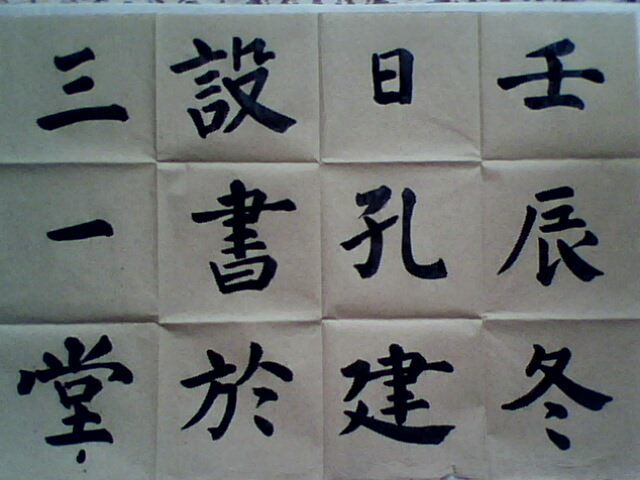 壬辰冬
日孔建
設書於
三一堂